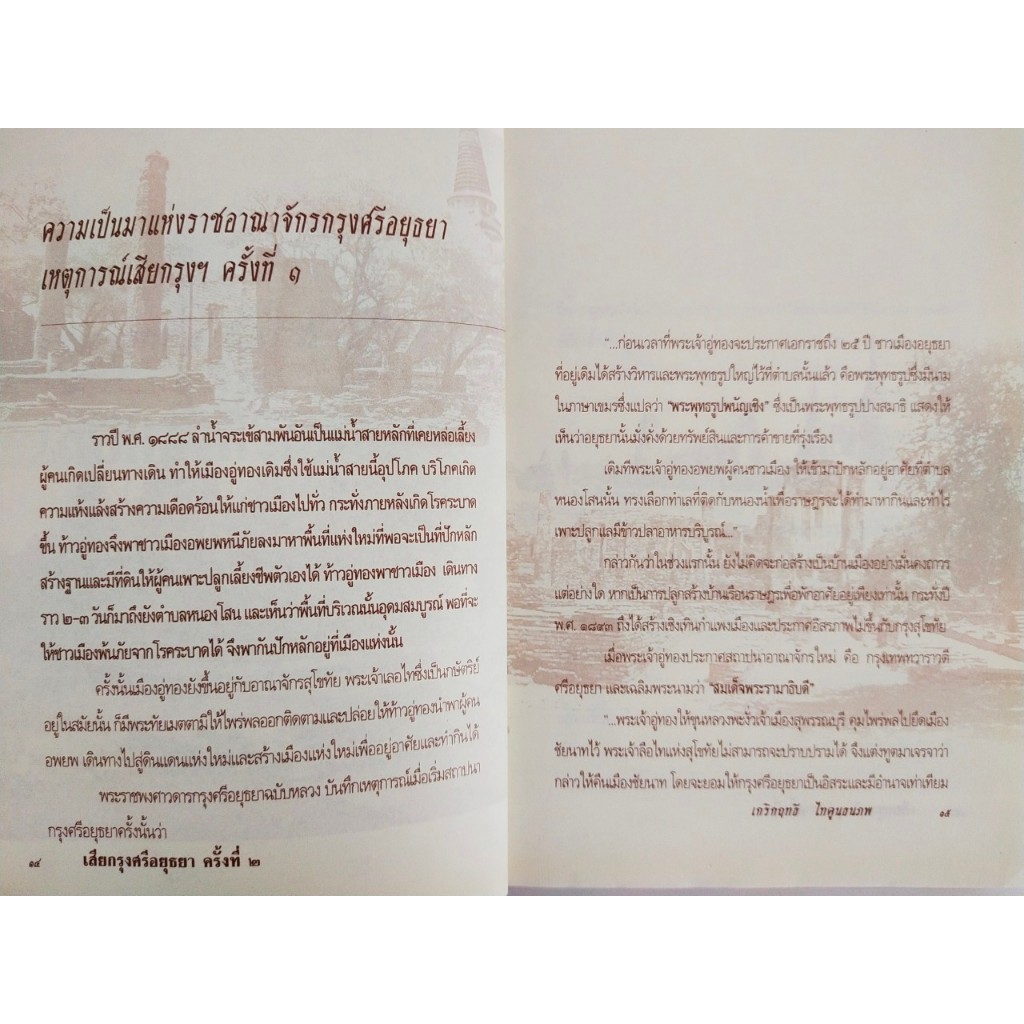 ความเป็นมาแห่งราชอาณาจักรกรุงศรีอยุธยา
เหตุการณ์เสียกรุงฯ ครั้งที่ ๑
ราวปี พ.ศ. ๑๘๘๘ ลำน้ำจระเข้สามพันอันเป็นแม่น้ำสายหลักที่เคยหล่อเลี้ยง
ผู้คนเกิดเปลี่ยนทางเดิน ทำให้เมืองอู่ทองเดิมซึ่งใช้แม่น้ำสายนี้อุปโภค บริโภคเกิด
ความแห้งแล้งสร้างความเดือดร้อนให้แก่ชาวเมืองไปทั่ว กระทั่งภายหลังเกิดโรคระบาด
ขึ้น ท้าวอู่ทองจึงพาชาวเมืองอพยพหนีภัยลงมาหาพื้นที่แห่งใหม่ที่พอจะเป็นที่ปักหลัก
สร้างฐานและมีที่ดินให้ผู้คนเพาะปลูกเลี้ยงชีพตัวเองได้ ท้าวอู่ทองพาชาวเมือง เดินทาง
ราว ๒-๓ วันก็มาถึงยังตำบลหนองโสน และเห็นว่าพื้นที่บริเวณนั้นอุดมสมบูรณ์ พอที่จะ
ให้ชาวเมืองพ้นภัยจากโรคระบาดได้ จึงพากันปักหลักอยู่ที่เมืองแห่งนั้น
ครั้งนั้นเมืองอู่ทองยังขึ้นอยู่กับอาณาจักรสุโขทัย พระเจ้าเลอไทซึ่งเป็นกษัตริย์
อยู่ในสมัยนั้น ก็มีพระทัยเมตตามิให้ไพร่พลออกติดตามและปล่อยให้ท้าวอู่ทองนำพาผู้คน
อพยพ เดินทางไปสู่ดินแดนแห่งใหม่และสร้างเมืองแห่งใหม่เพื่ออยู่อาศัยและทำกินได้
พระราชพงศาวดารกรุงศรีอยุธยาฉบับหลวง บันทึกเหตุการณ์เมื่อเริ่มสถาปนา
กรุงศรีอยุธยาครั้งนั้นว่า
๑๔ เสียกรุงศรีอยุธยา ครั้งที่ ๒
"...ก่อนเวลาที่พระเจ้าอู่ทองจะประกาศเอกราชถึง ๒๕ ปี ชาวเมืองอยุธยา
ที่อยู่เดิมได้สร้างวิหารและพระพุทธรูปใหญ่ไว้ที่ตำบลนั้นแล้ว คือพระพุทธรูปซึ่งมีนาม
ในภาษาเขมรซึ่งแปลว่า "พระพุทธรูปพนัญเชิง" ซึ่งเป็นพระพุทธรูปปางสมาธิ แสดงให้
เห็นว่าอยุธยานั้นมั่งคั่งด้วยทรัพย์สินและการค้าขายที่รุ่งเรือง
เดิมทีพระเจ้าอู่ทองอพยพผู้คนชาวเมือง ให้เข้ามาปักหลักอยู่อาศัยที่ตำบล
หนองโสนนั้น ทรงเลือกทำเลที่ติดกับหนองน้ำเพื่อราษฎรจะได้ทำมาหากินและทำไร่
เพาะปลูกแลมีข้าวปลาอาหารบริบูรณ์..."
กล่าวกันว่าในช่วงแรกนั้น ยังไม่คิดจะก่อสร้างเป็นบ้านเมืองอย่างมั่นคงถาวร
แต่อย่างใด หากเป็นการปลูกสร้างบ้านเรือนราษฎรเพื่อพักอาศัยอยู่เพียงเท่านั้น กระทั่งปี
พ.ศ. ๑๘๙๓ ถึงได้สร้างเชิงเทินกำแพงเมืองและประกาศอิสรภาพไม่ขึ้นกับกรุงสุโขทัย
เมื่อพระเจ้าอู่ทองประกาศสถาปนาอาณาจักรใหม่ คือ กรุงเทพทวาราวดี
ศรีอยุธยา และเฉลิมพระนามว่า "สมเด็จพระรามาธิบดี"
"...พระเจ้าอู่ทองให้ขุนหลวงพะงั่วเจ้าเมืองสุพรรณบุรี คุมไพร่พลไปยึดเมือง
ชัยนาทไว้ พระเจ้าลือไทแห่งสุโขทัยไม่สามารถจะปราบปรามได้ จึงแต่งทูตมาเจรจาว่า
กล่าวให้คืนเมืองชัยนาท โดยจะยอมให้กรุงศรีอยุธยาเป็นอิสระและมีอำนาจเท่าเทียม
เกริกฤทธิ ไทคูนธนภพ ๑๕